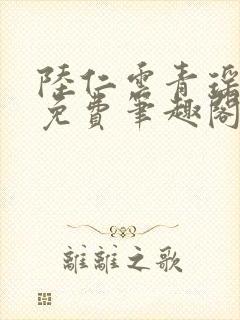 陸仁雲青瑤
免費筆趣閣
離離之歌